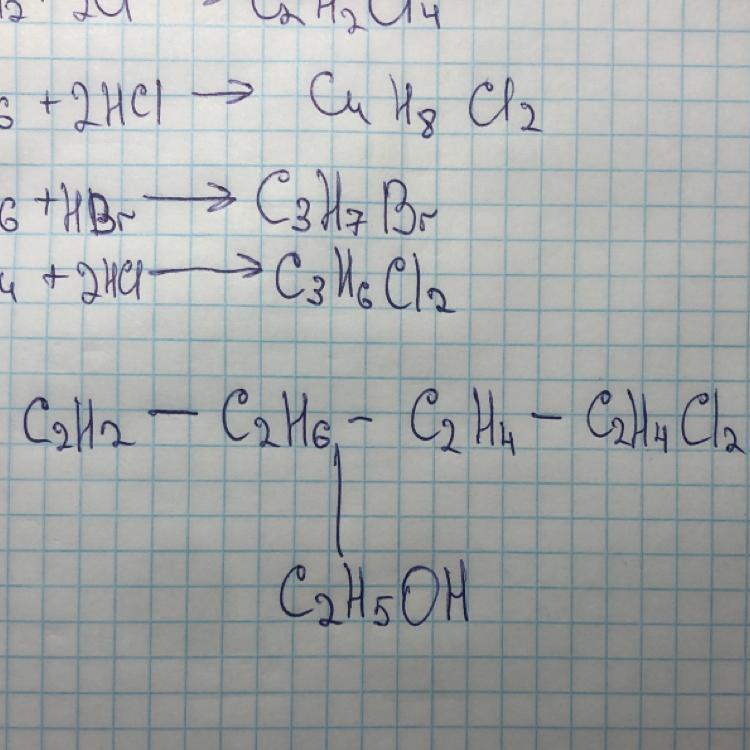 C₂H₂Cl₄
6 + 2HCl → C₄H₈Cl₂
6 + HBr → C₃H₇Br
4 + 2HCl → C₃H₆Cl₂
C₂H₂ — C₂H₆ - C₂H₄ - C₂H₄Cl₂
C₂H₅OH